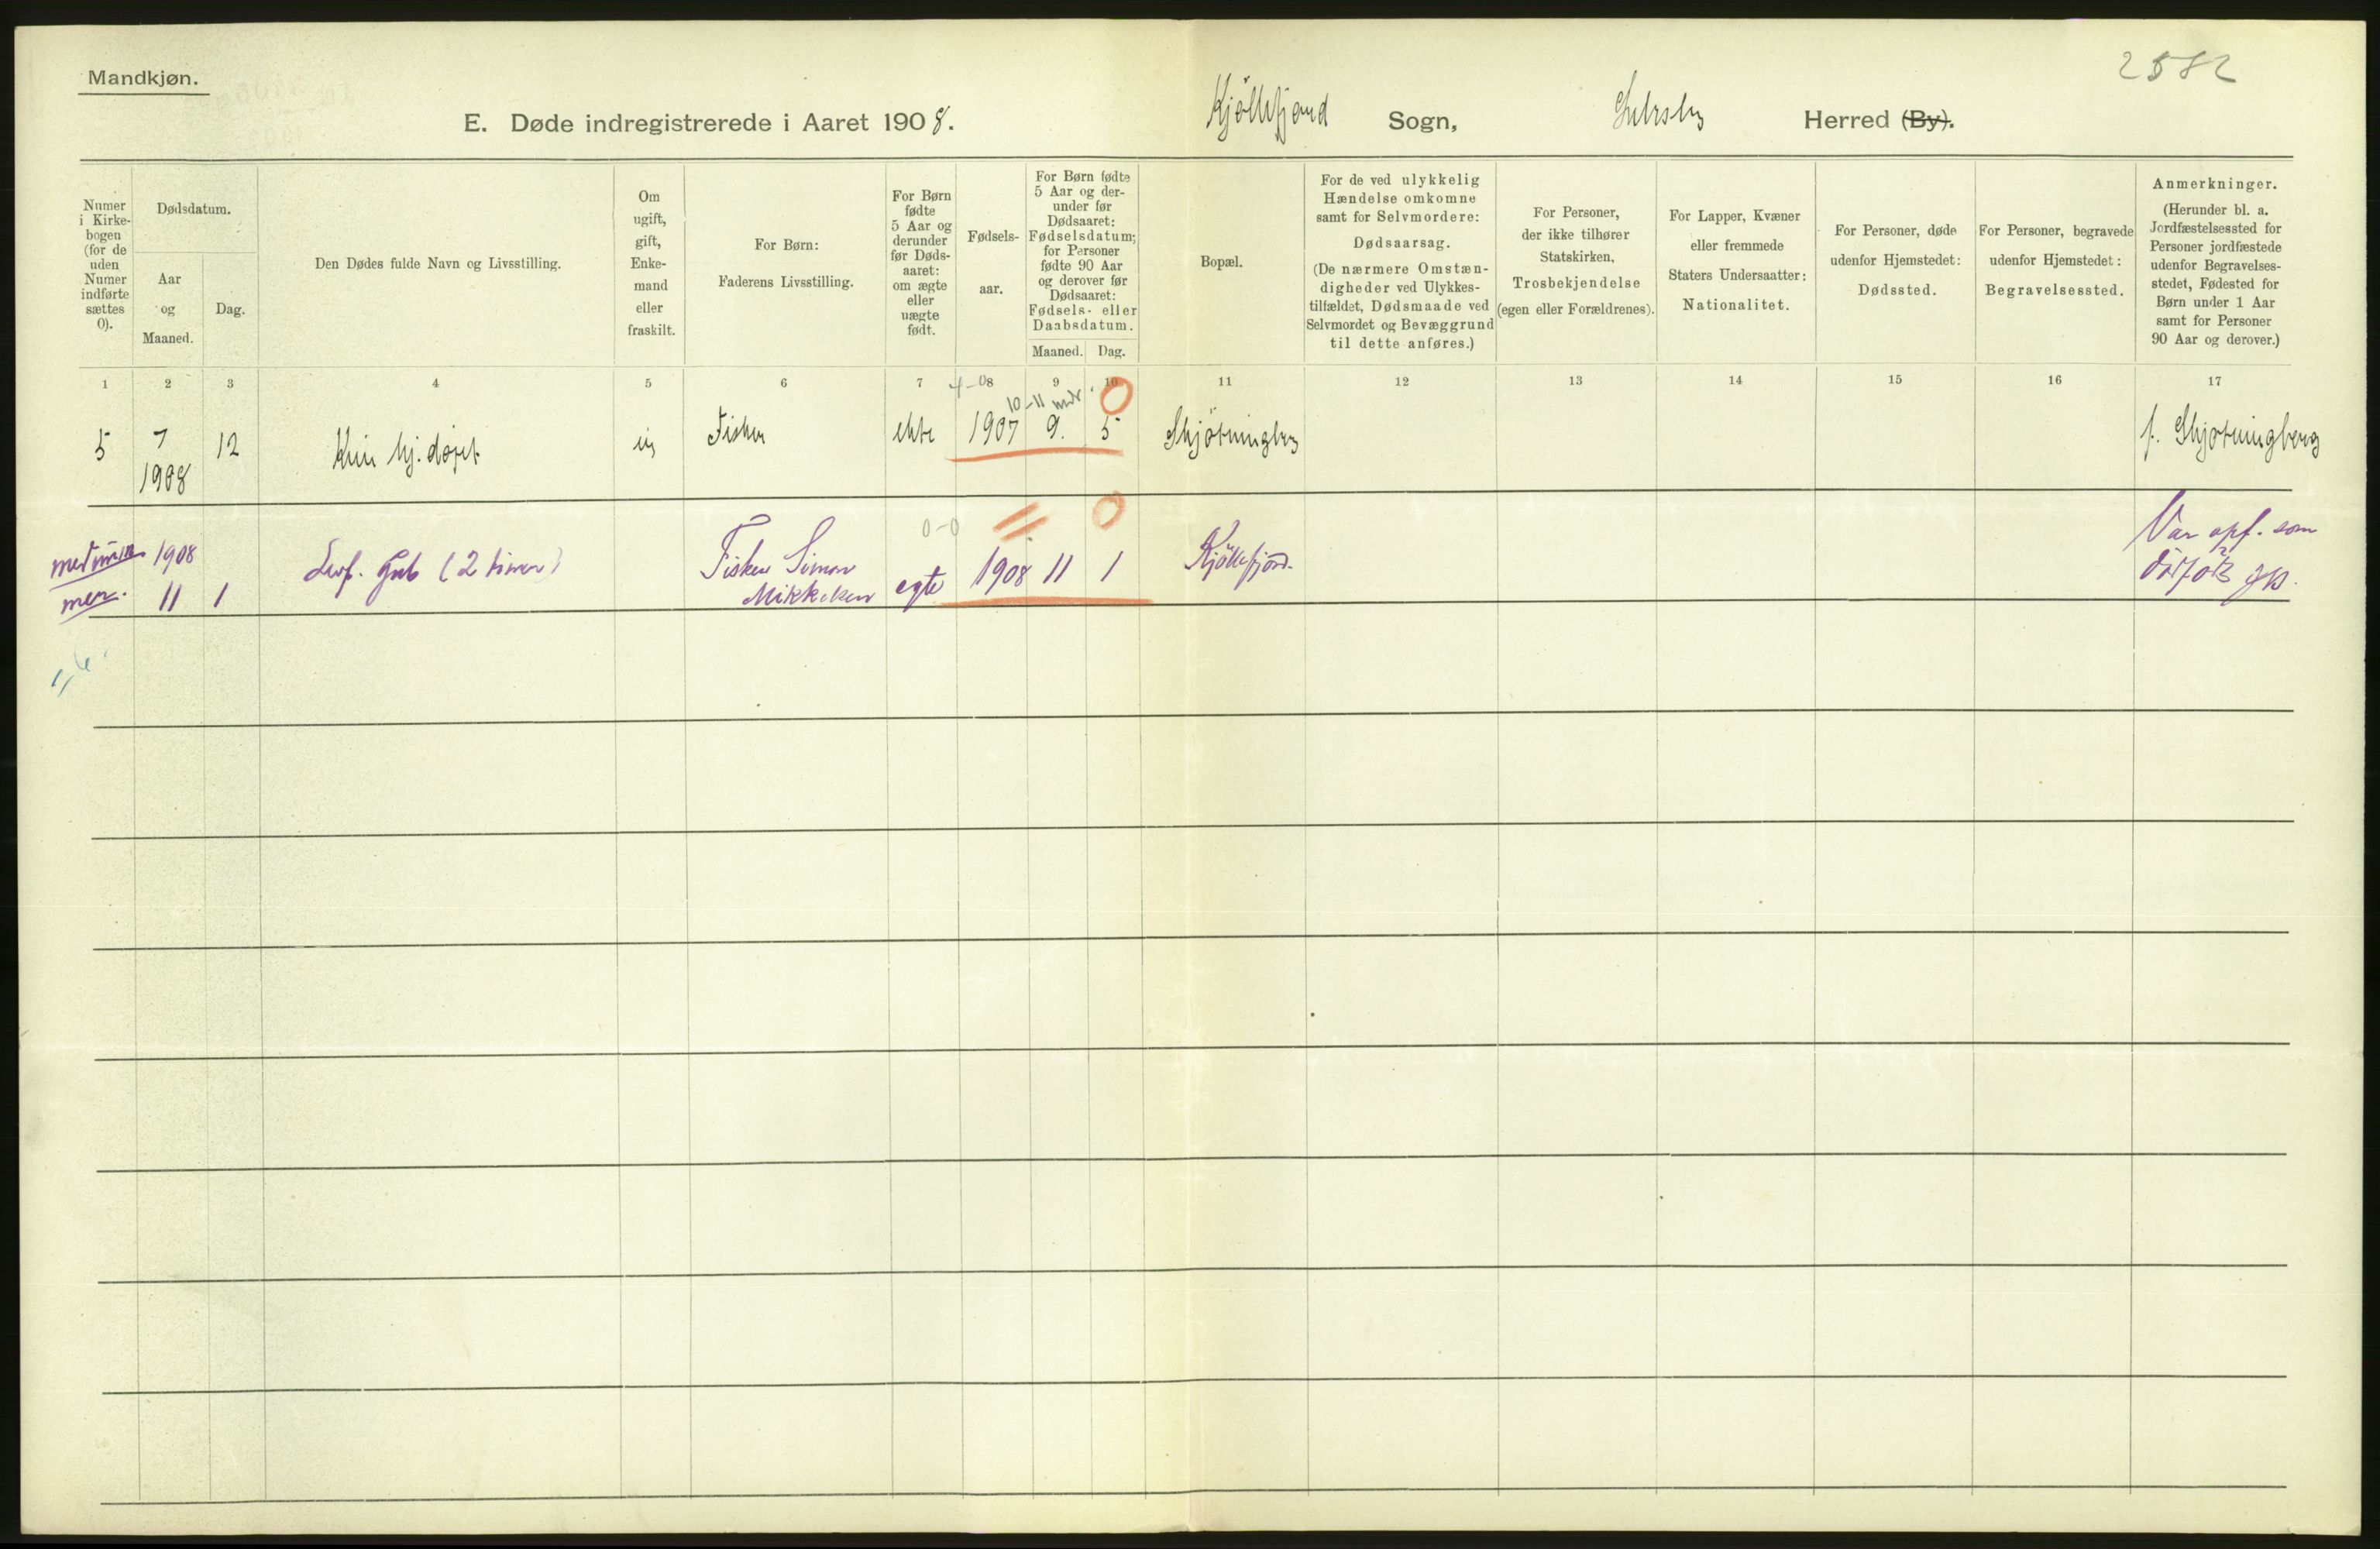 2582
Mandkjøn.
E. Døde indregistrerede i Aaret 1908.
Kjøllefjord Sogn, Herred (By).
Numer
i Kirke-
bogen
(for de
uden
Numer
indførte
sættes
0).
Dødsdatum.
Aar
og
Maaned.
Dag.
Den Dødes fulde Navn og Livsstilling.
Om
ugift,
gift,
Enke-
mand
eller
fraskilt.
For Børn:
Faderens Livsstilling.
For Børn
fødte
5 Aar og
derunder
før Døds-
aaret:
om ægte
eller
uægte
født.
Fødsels-
aar.
For Børn fødte
5 Aar og der-
under før
Dødsaaret:
Fødselsdatum;
for Personer
fødte 90 Aar
og derover før
Dødsaaret:
Fødsels- eller
Daabsdatum.
Maaned. Dag.
Bopæl.
For de ved ulykkelig
Hændelse omkomne
samt for Selvmordere:
Dødsaarsag.
(De nærmere Omstæn-
digheder ved Ulykkes-
tilfældet, Dødsmaade ved
Selvmordet og Bevæggrund
til dette anføres.)
For Personer,
der ikke tilhører
Statskirken,
Trosbekjendelse
(egen eller Forældrenes).
For Lapper, Kvæner
eller fremmede
Staters Undersaatter:
Nationalitet.
For Personer, døde
udenfor Hjemstedet:
Dødssted.
For Personer, begravede
udenfor Hjemstedet:
Begravelsessted.
Anmerkninger.
(Herunder bl. a.
Jordfæstelsessted for
Personer jordfæstede
udenfor Begravelses-
stedet, Fødested for
Børn under 1 Aar
samt for Personer
90 Aar og derover.)
1 2 3 4 5 6 7 8 9 10 11 12 13 14 15 16 17
10-11 mdr. 0
5 7 12 Kun hj. døpt ug Fisker ekte 1907 9. 5 Skjøtningberg f. Skjøtningberg
1908
0-0 0
1908 Fisker Simon Kjøllefjord. Var opf. som
11 1 Gut (2 timer) Mikkelsen egte 1908 11 1